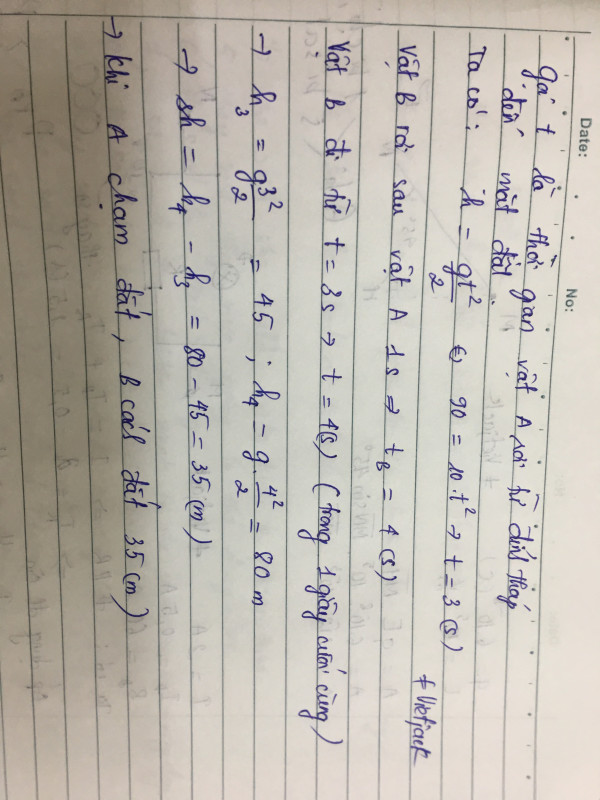 Date: No:
gọi t là thời gian vật A rơi từ đỉnh tháp
đến mặt đất
Ta có: h = gt²/2 ⇔ 90 = 10.t² → t = 3 (s)
≠ Vietjack
Vật B rơi sau vật A 1s ⇒ t_B = 4 (s)
Vật B đi từ t = 3s → t = 4(s) (trong 1 giây cuối cùng)
→ h₃ = g3²/2 = 45 ; h₄ = g.4²/2 = 80 m
→ sh = h₄ - h₃ = 80 - 45 = 35 (m)
→ khi A chạm đất, B cách đất 35 (m)